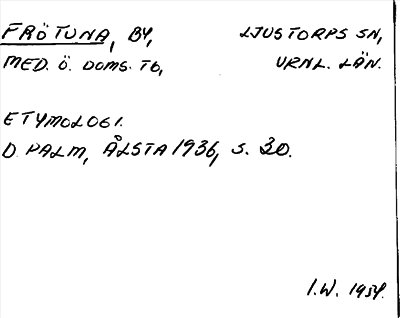 FRÖTUNA, BY, LJUSTORPS SN,
MED. Ö. DOMS. TB, VRNL. LÄN.
ETYMOLOGI.
D. PALM, ÅLSTA 1936, S. 30.
I.W. 1954.